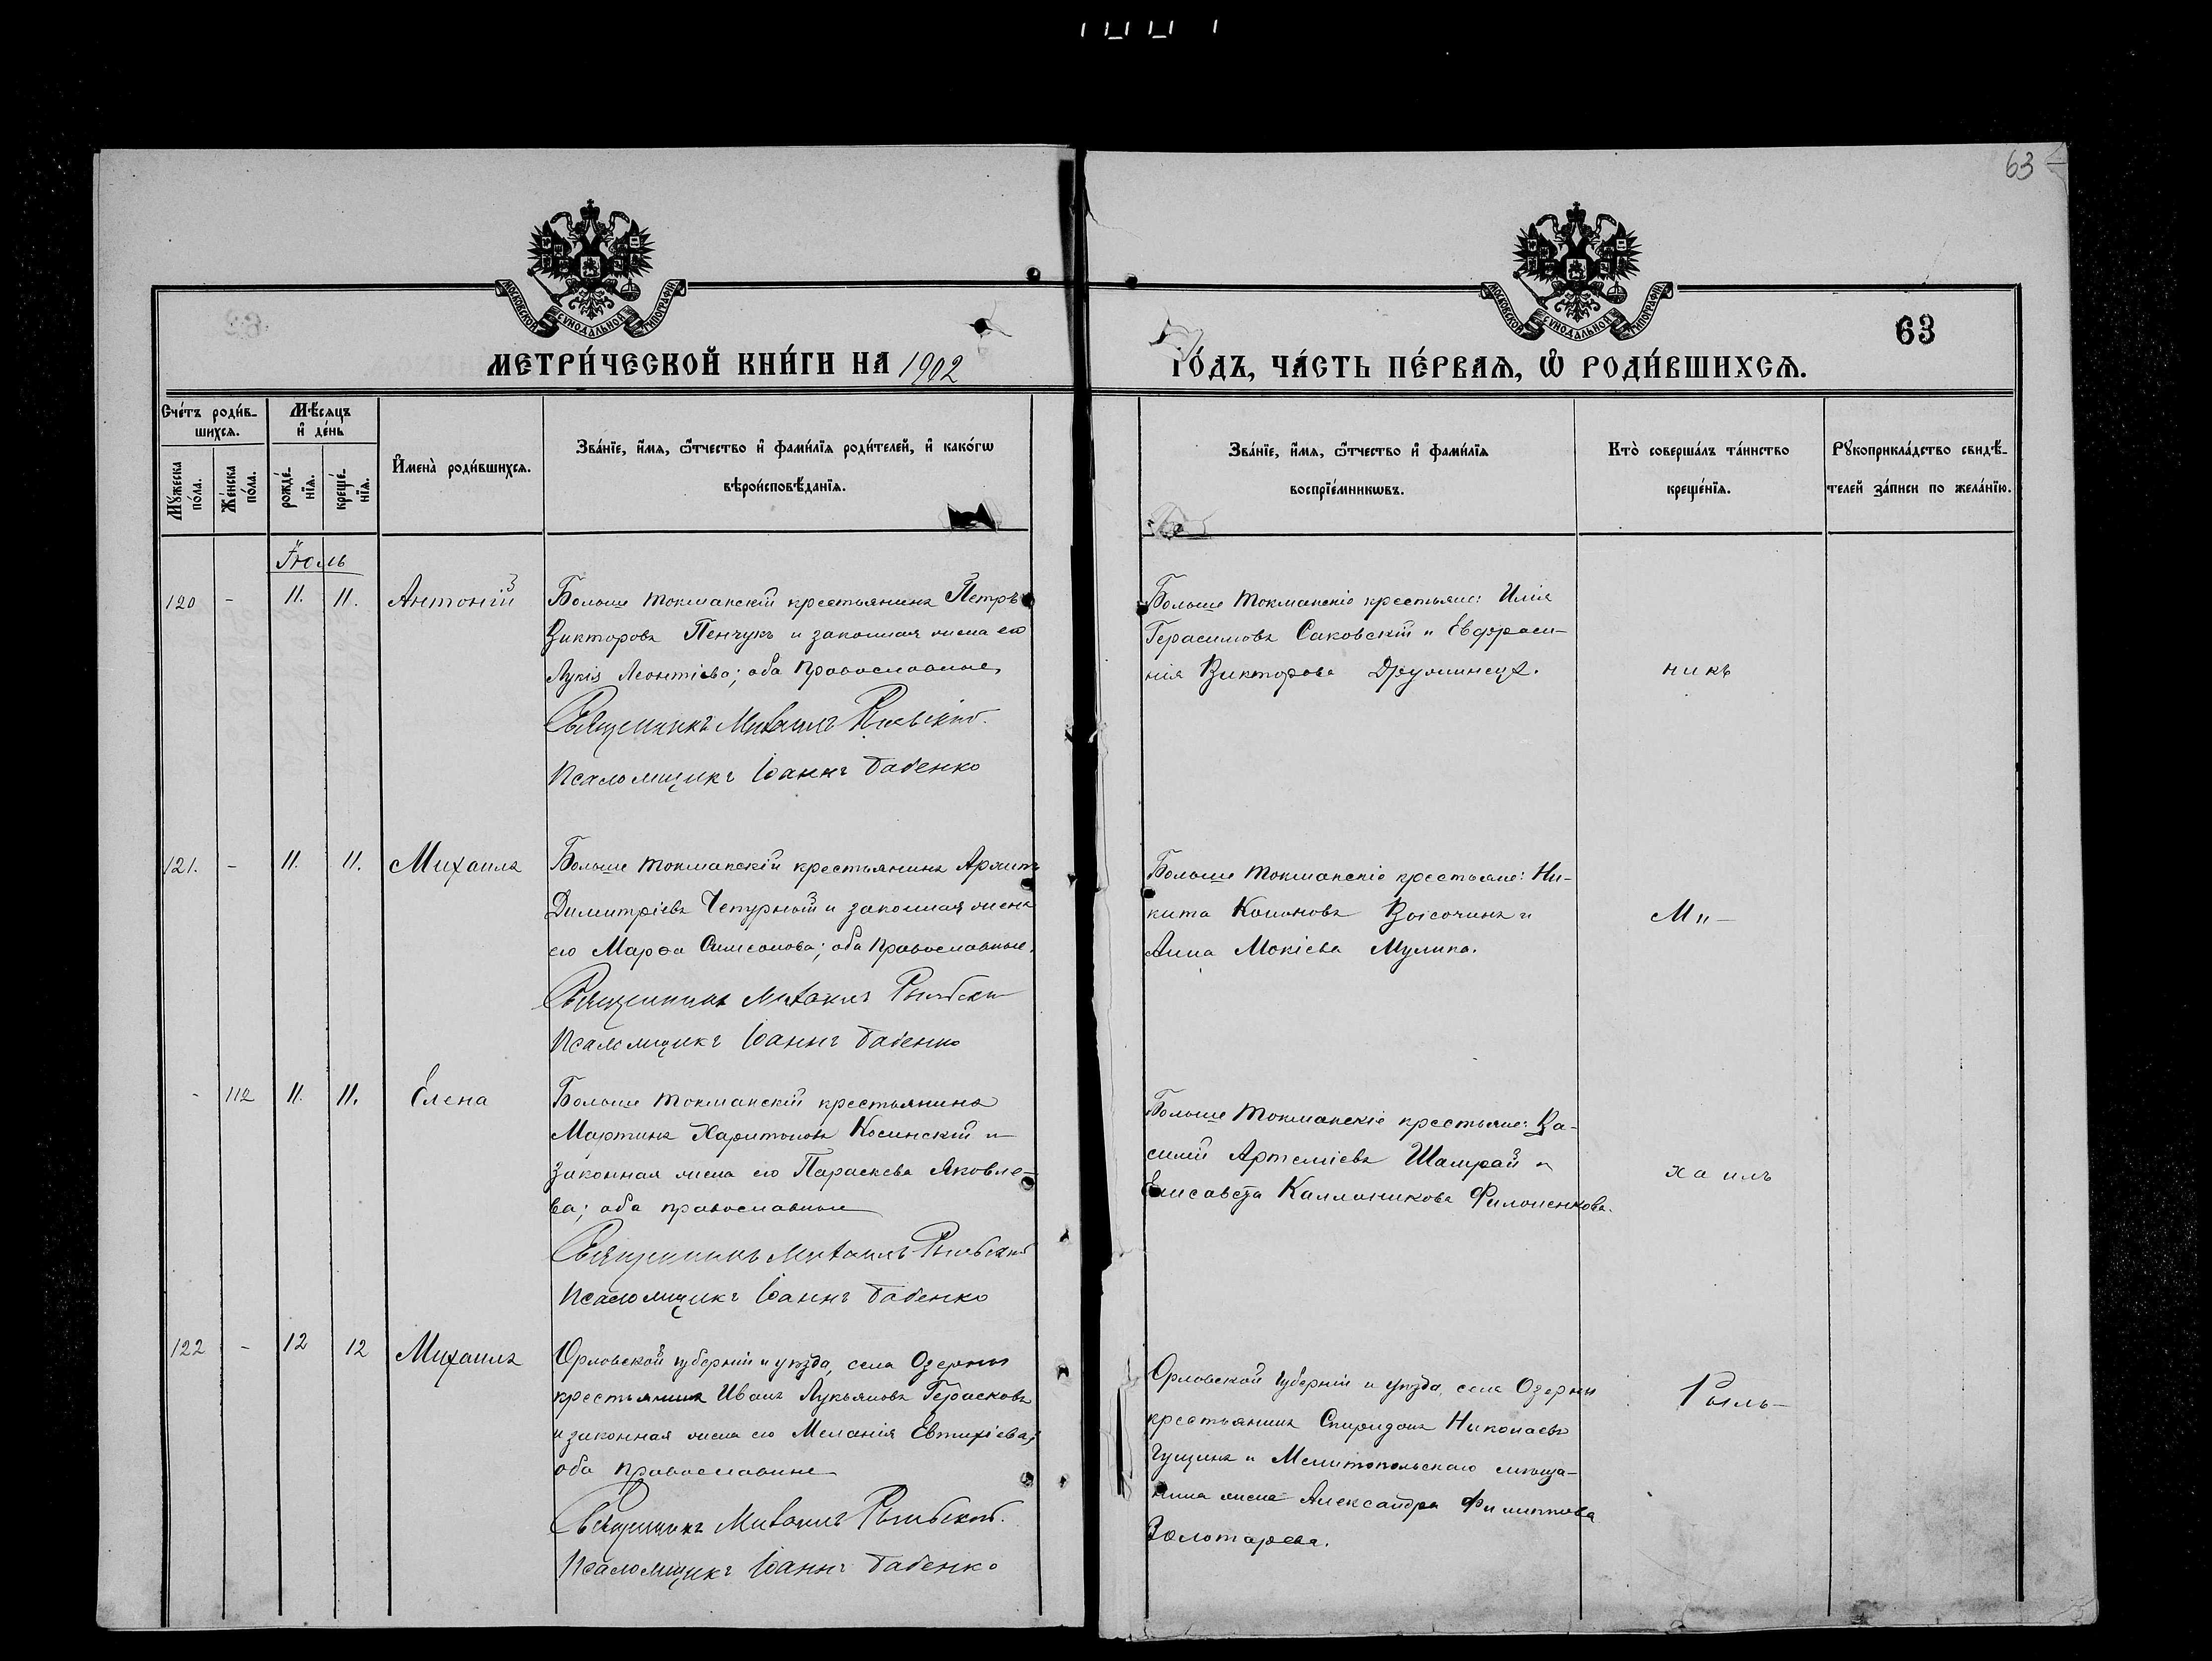 63
МОСКОВСКОЙ СѴНОДАЛЬНОЙ ТИПОГРАФІИ
МОСКОВСКОЙ СѴНОДАЛЬНОЙ ТИПОГРАФІИ
63
МЕТРИ́ЧЕСКОЙ КНИ́ГИ НА 1902
ГО́ДЪ, ЧА́СТЬ ПЕ́РВАѦ, Ѽ РОДИ́ВШИХСѦ.
Сче́тъ роди́в-
шихсѧ.
Мꙋжеска по́ла.
Же́нска по́ла.
Мѣ́сѧцъ
и҆ де́нь
рожде́-
нїѧ.
креще́-
нїѧ.
И҆мена̀ роди́вшихсѧ.
Зва́нїе, и҆́мѧ, ѻ҆́тчество и҆ фами́лїѧ роди́телей, и҆ како́гѡ
вѣроисповѣ́данїѧ.
Зва́нїе, и҆́мѧ, ѻ҆́тчество и҆ фами́лїѧ
воспрїе́мникѡвъ.
Кто̀ соверша́лъ та́инство
креще́нїѧ.
Рꙋкоприкла́дство свидѣ́-
телей за́писи по жела́нїю.
Іюль
120 - 11. 11. Антоній
Больше Токмакскій крестьянинъ Петръ
Викторовъ Пенчукъ и законная жена его
Лукія Леонтіева; оба Православные
Священникъ Михаилъ Рыльскій.
Псаломщикъ Іоаннъ Бабенко
Больше Токмакскіе крестьяне: Илія
Герасимовъ Саковскій и Евфраси-
нія Викторова
никъ
121. - 11. 11. Михаилъ
Больше Токмакскій крестьянинъ Архипъ
Димитріевъ Чепурной и законная жена
его Марѳа Симеонова; оба Православные.
Священникъ Михаилъ Рыльскій
Псаломщикъ Іоаннъ Бабенко
Больше Токмакскіе крестьяне: Ни-
кита Кононовъ Высочинъ и
Анна Мокіева Мулина.
Ми-
- 112 11. 11. Елена
Больше Токмакскій крестьянинъ
Мартинъ Харитоновъ Косинскій и
законная жена его Параскева Яковле-
ва; оба православные
Священникъ Михаилъ Рыльскій
Псаломщикъ Іоаннъ Бабенко
Больше Токмакскіе крестьяне: Ва-
силій Артеміевъ Шамрай и
Елисавета Каллиникова Филоненкова.
хаилъ
122 - 12 12 Михаилъ
Орловской губерніи и уѣзда, села Озерны
крестьянинъ Иванъ Лукьяновъ Герасковъ
и законная жена его Меланія Евтихіева;
оба православные
Священникъ Михаилъ Рыльскій.
Псаломщикъ Іоаннъ Бабенко
Орловской губерніи и уѣзда, села Озерны
крестьянинъ Спиридонъ Николаевъ
Гущинъ и Мелитопольскаго мѣща-
нина жена Александра Филиппова
Золотарева.
Рыль-